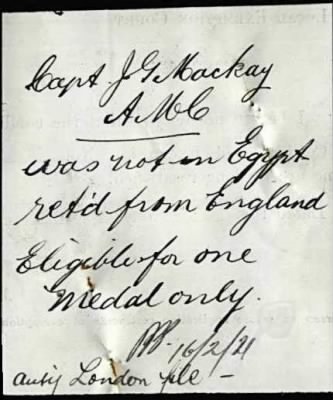 Capt J G Mackay
AMC
was not in Egypt
ret'd from England
Eligible for one
Medal only.
16/2/21
auty London file -